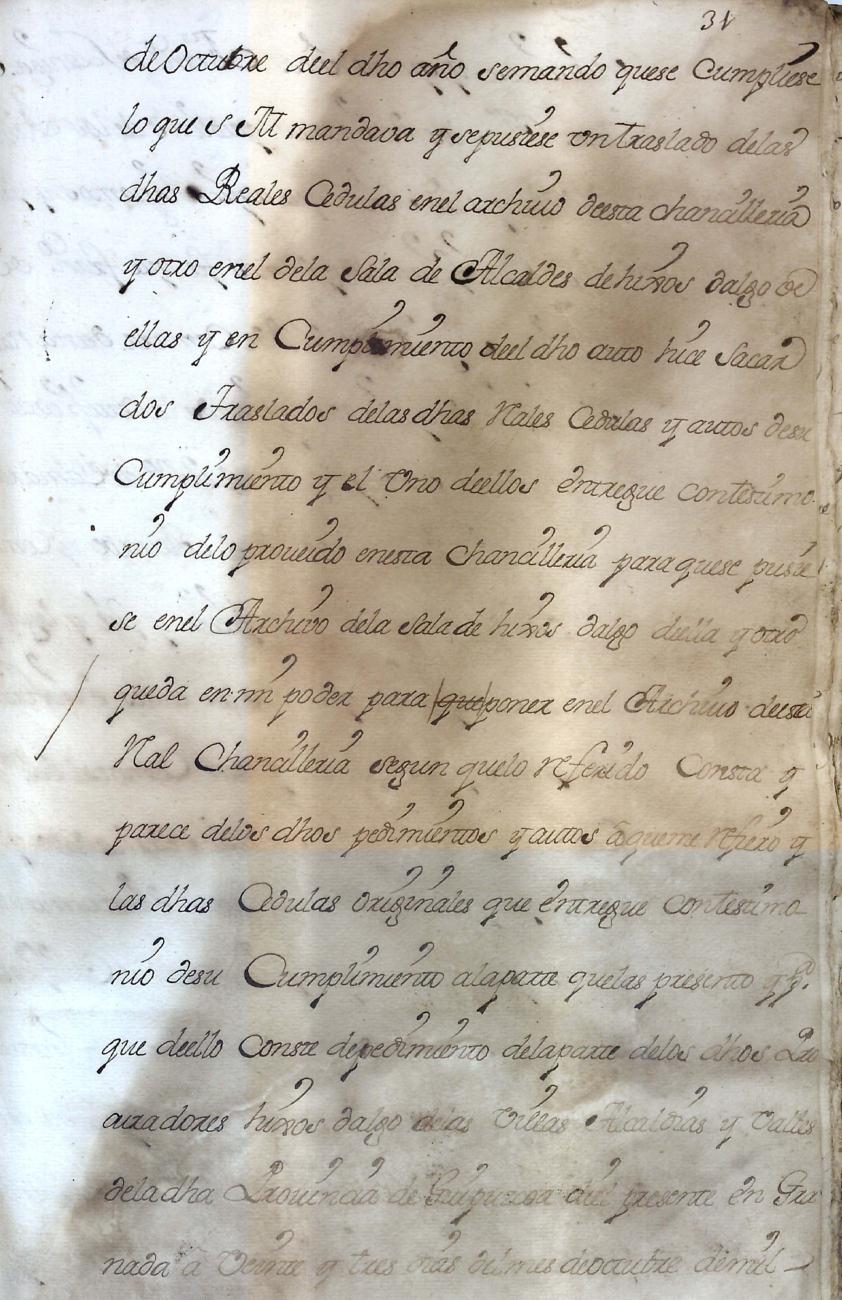 31
de Octubre deel dho año semando quese Cumpliese
lo que S M mandava y sepusiese un traslado delas
dhas Reales Cedulas enel archivo deesta chancilleria
y otro enel dela Sala de Alcaldes de hixos dalgo de
ellas y en Cumplimiento deel dho auto hice Sacar
dos Traslados delas dhas Rales Cedulas y autos desu
Cumplimiento y el Uno deellos entregue contestimo
nio delo proueido enesta Chancilleria paraquese pusie
se enel Archivo dela Sala de hixos dalgo deella y otro
queda en mi poder para que poner enel Archivo deesta
Ral Chancilleria segun quelo Referido Consta y
parece delos dhos pedimientos y autos aqueme Refiero y
las dhas Cedulas originales que entregue contestimo
nio desu Cumplimiento alaparte quelas presento y p.
que deello conste depedimiento delaparte delos dhos Pro
curadores hixos dalgo delas Villas Alcaldias y Valles
deladha Provincia de Guipuzcoa diel presente en Gra
nada a Veinte y tres dias delmes deoctubre demil